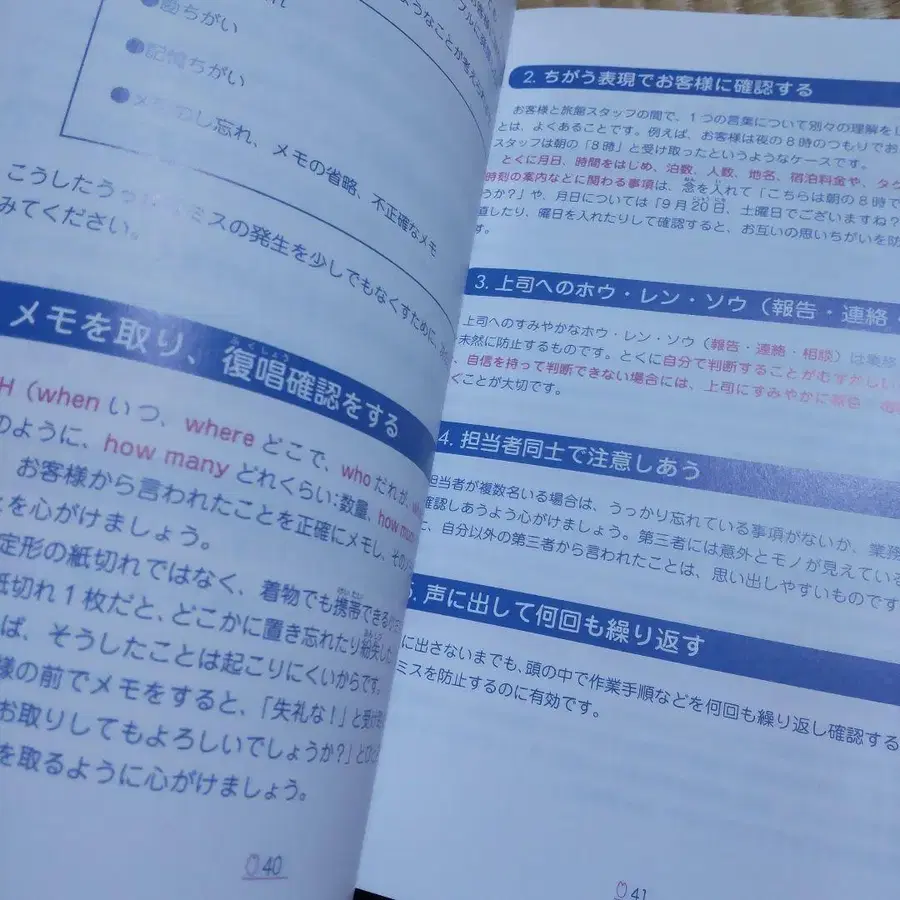 れ
ちがい
●記憶ちがい
し忘れ、メモの省略、不正確なメモ
こうしたうっかりミスの発生を少しでもなくすために、
みてください。
メモを取り、復唱確認をする
ふくしょう
H（when いつ、where どこで、who だれが、
のように、how many どれくらい：数量、how much
お客様から言われたことを正確にメモし、その
を心がけましょう。
定形の紙切れではなく、着物でも携帯できる
紙切れ1枚だと、どこかに置き忘れたり紛失した
ば、そうしたことは起こりにくいからです。
様の前でメモをすると、「失礼な！」と受け
お取りしてもよろしいでしょうか？」とひと
を取るように心がけましょう。
40
2. ちがう表現でお客様に確認する
お客様と旅館スタッフの間で、1つの言葉について別々の理解をし
とは、よくあることです。例えば、お客様は夜の8時のつもりでお
スタッフは朝の「8時」と受け取ったというようなケースです。
とくに月日、時間をはじめ、泊数、人数、地名、宿泊料金や、タク
時刻の案内などに関わる事項は、念を入れて「こちらは朝の8時で
うか？」や、月日については「9月20日、土曜日でございますね？
直したり、曜日を入れたりして確認すると、お互いの思いちがいを防
す。
3. 上司へのホウ・レン・ソウ（報告・連絡・
上司へのすみやかなホウ・レン・ソウ（報告・連絡・相談）は業務
未然に防止するものです。とくに自分で判断することがむずかしい
、自信を持って判断できない場合には、上司にすみやかに報告・連
ぐことが大切です。
4. 担当者同士で注意しあう
担当者が複数名いる場合は、うっかり忘れている事項がないか、業務
確認しあうよう心がけましょう。第三者には意外とモノが見えている
に、自分以外の第三者から言われたことは、思い出しやすいものです
5. 声に出して何回も繰り返す
に出さないまでも、頭の中で作業手順などを何回も繰り返し確認する
ミスを防止するのに有効です。
41